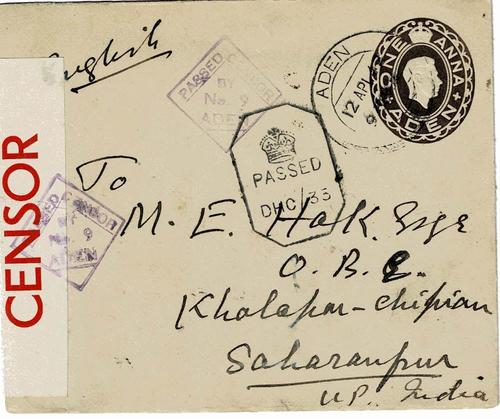 English
PASSED CENSOR
BY
No. 9
ADEN
ADEN
12 APL
ONE ANNA
ADEN
PASSED
DHC/35
CENSOR
PASSED CENSOR
BY
No. 9
ADEN
To
M. E. Esqr
O. B. E.
Khalapar-chipian
Saharanpur
U.P. India